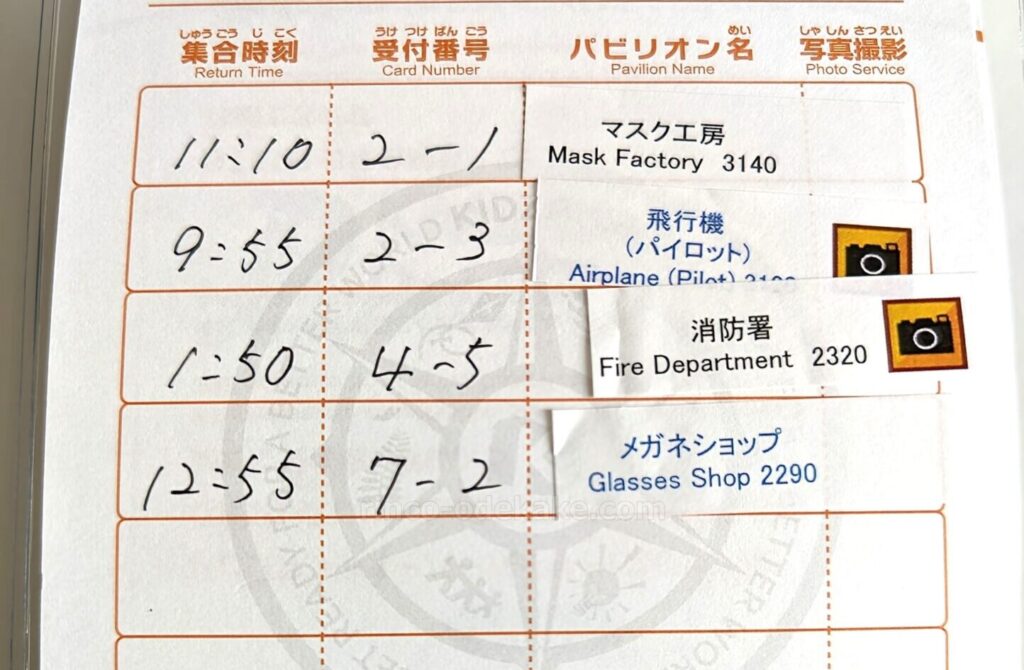 しゅうごうじこく うけつけばんごう めい しゃしんさつえい
集合時刻 受付番号 パビリオン名 写真撮影
Return Time Card Number Pavilion Name Photo Service
マスク工房
11:10 2-1 Mask Factory 3140
飛行機
9:55 2-3 (パイロット)
Airplane (Pilot)
消防署
1:50 4-5 Fire Department 2320
メガネショップ
12:55 7-2 Glasses Shop 2290